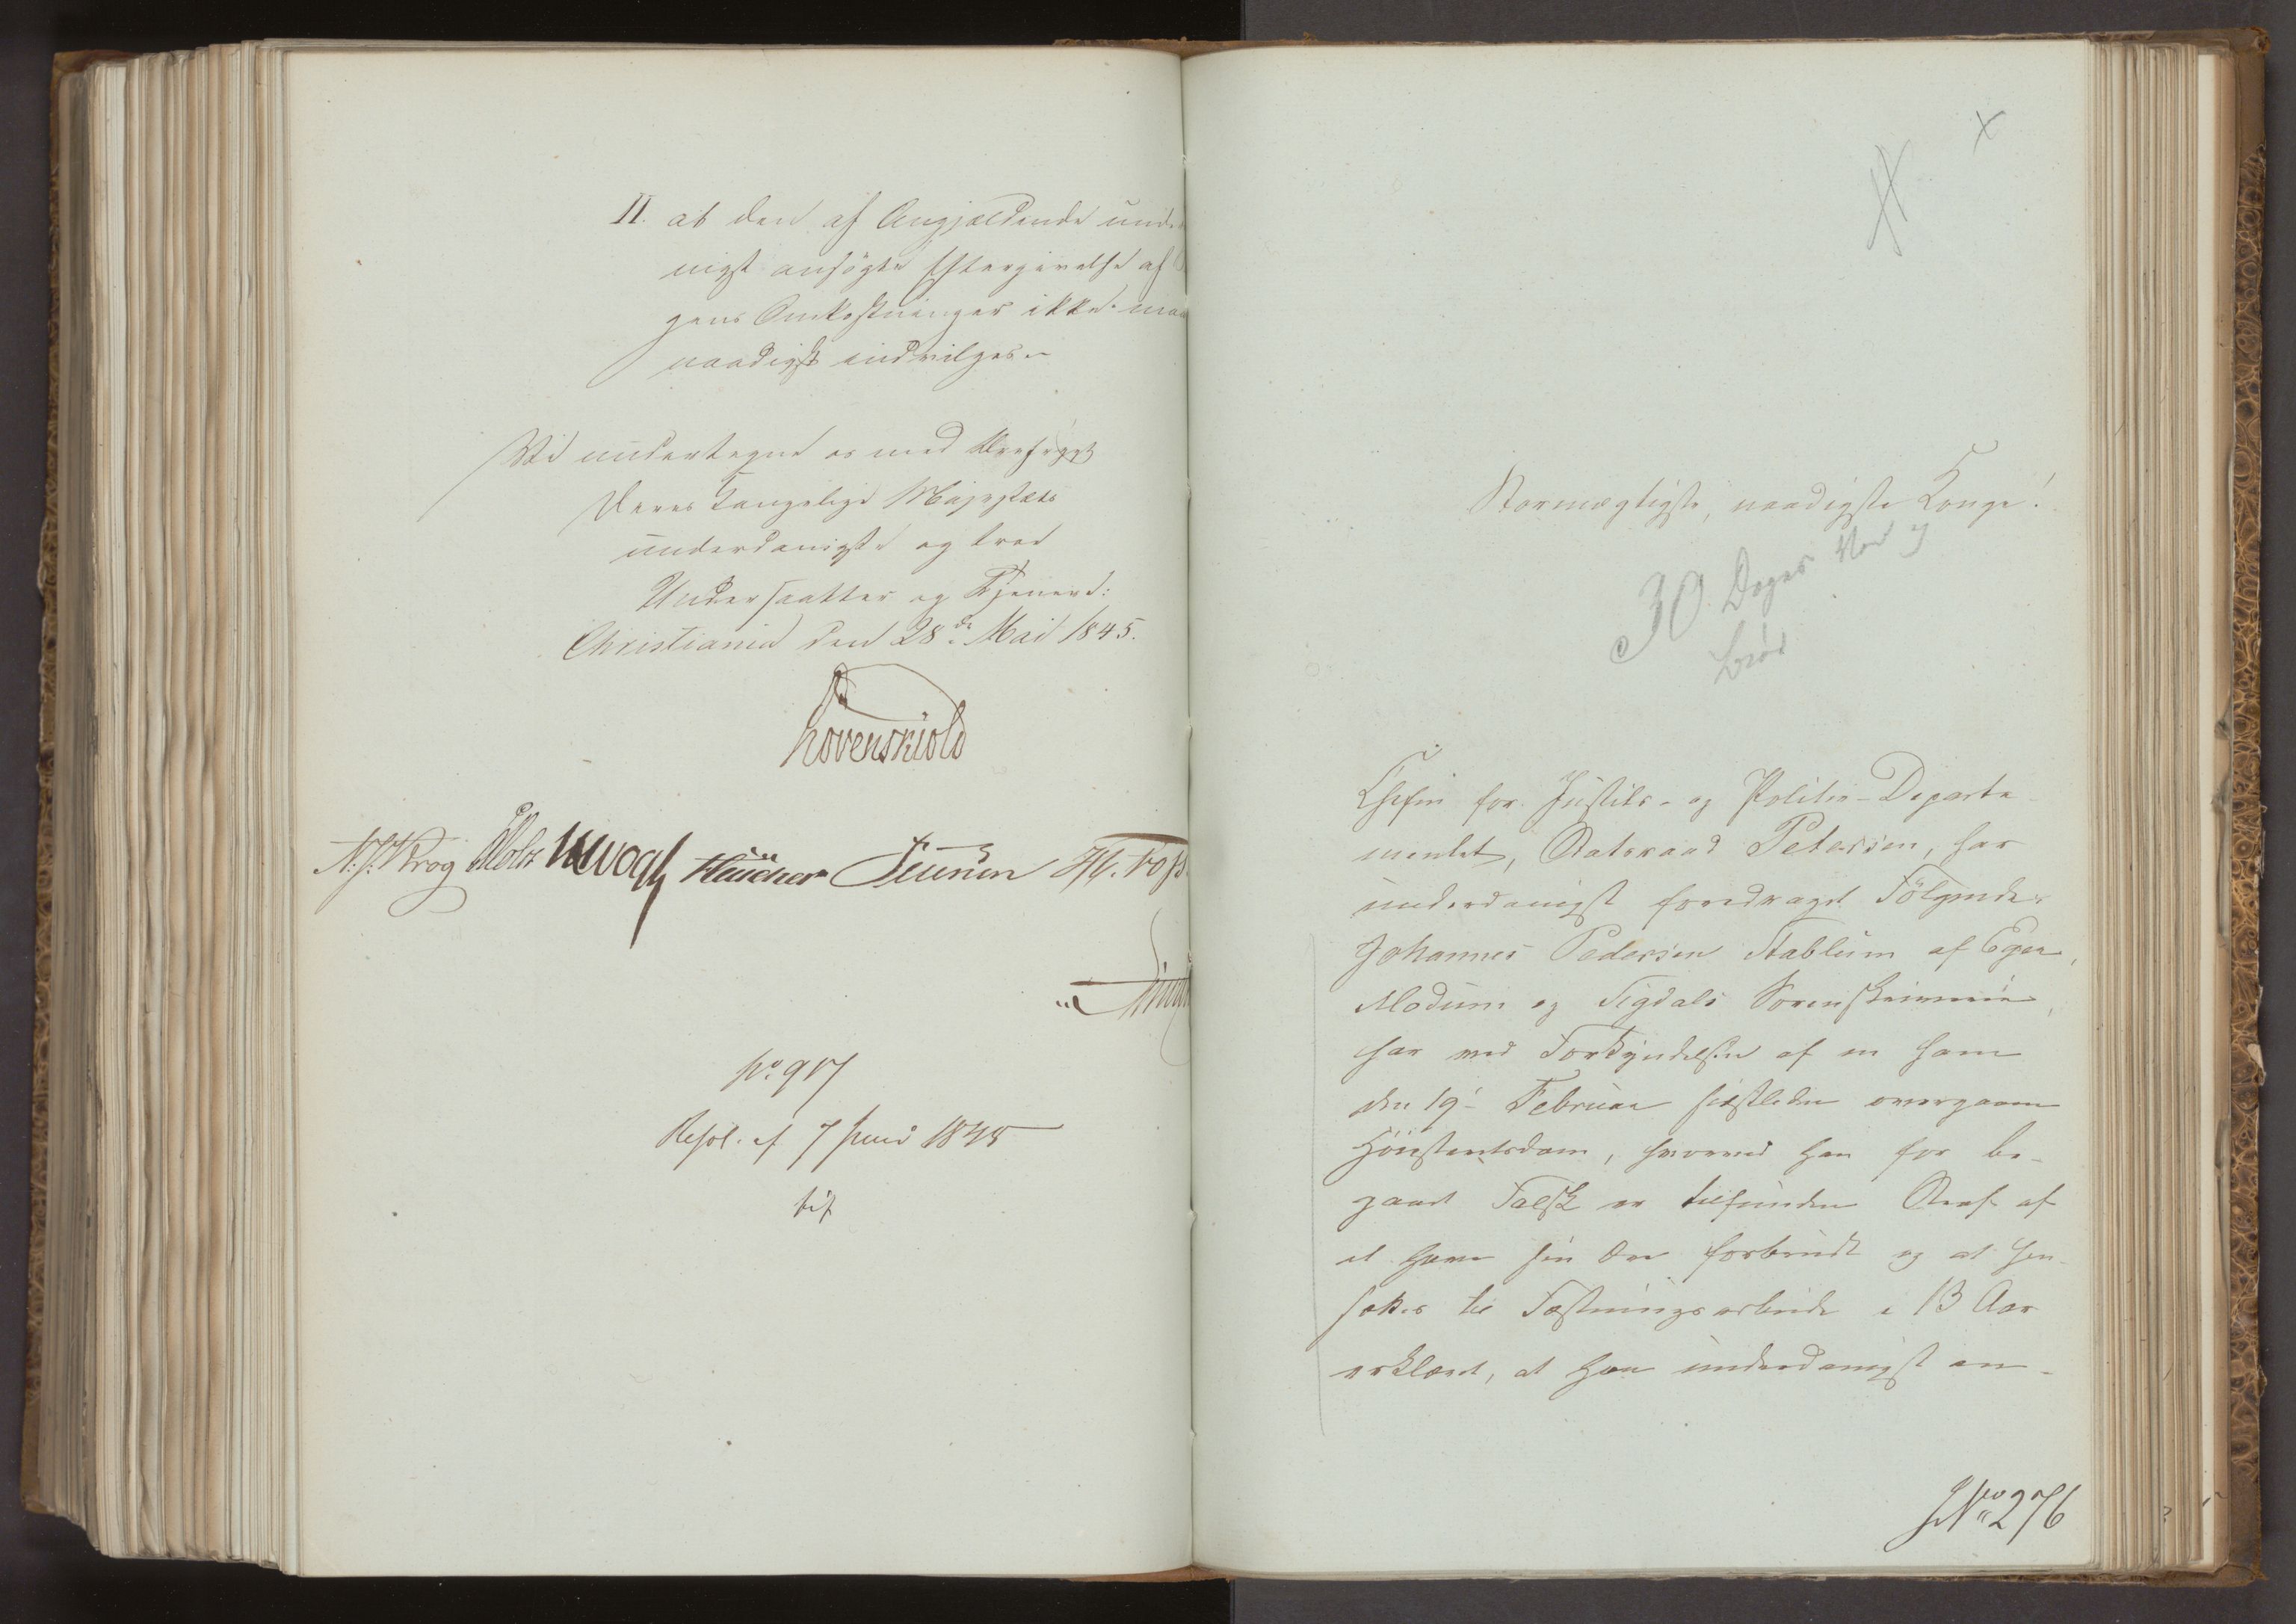 II. at den af Angjældende unde
nigst ansøgte Eftergivelse af
gens Omkostninger ikke maa
naadigst indvilges.
Vi undertegne os med Ærefrygt
Deres Kongelige Majestæts
underdanigste og troe
Undersaatter og Tjenere:
Christiania den 28de Mai 1845.
Løvenskiold
N. J. Krog Holst Vogt
No 917
Resol. af 7 Juni 1845
Stormægtigste, naadigste Konge!
30 Dages Vand og
brød
Chefen for Justits- og Politie-Departe
mentet, Statsraad Petersen, har
underdanigst foredraget Følgende:
Johannes Pedersen Stablum af Eger,
Modum og Sigdals Sorenskriverie,
har ved Forkyndelsen af en ham
den 19de Februar sidstleden overgaaen
Høiesteretsdom, hvorved han for be-
gaaet Falsk er tilfunden Straf af
at have sin Ære forbrudt og at hen-
sættes til Fæstningsarbeide i 13 Aar
erklæret, at han underdanigst an-
JNo 276